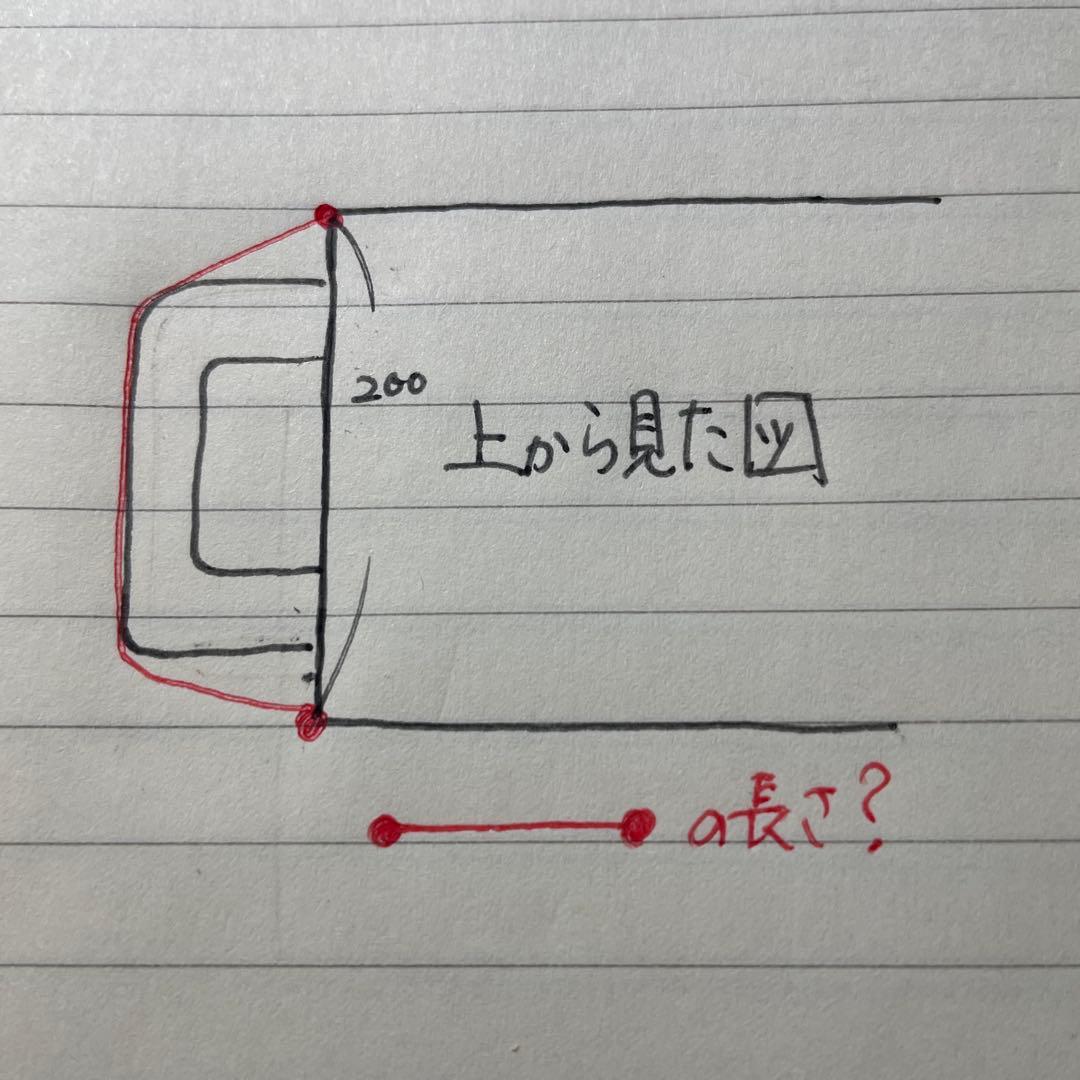 200
上から見た図
の長さ?